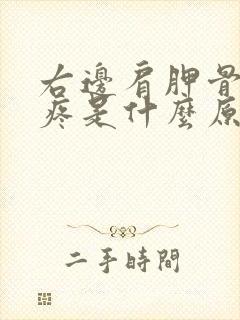 右邊肩胛骨
疼是什麼原
二手時間